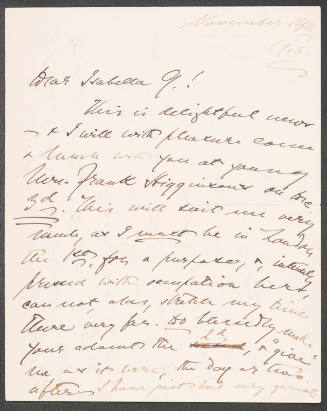 November 14th
1906
Dear Isabella G.!
This is delightful news
& I will with pleasure come
& lunch with you at young
Mrs. Frank Higginson's on Dec.
3d. This will suit me very
much, as I must be in London
the 1st, for a purpose, &, intensely
pressed with occupation here,
can not, alas, stretch my time
there very far. So blessedly make
your advent the 3d, & "give"
me as it were, the day or two
after. I have just had very